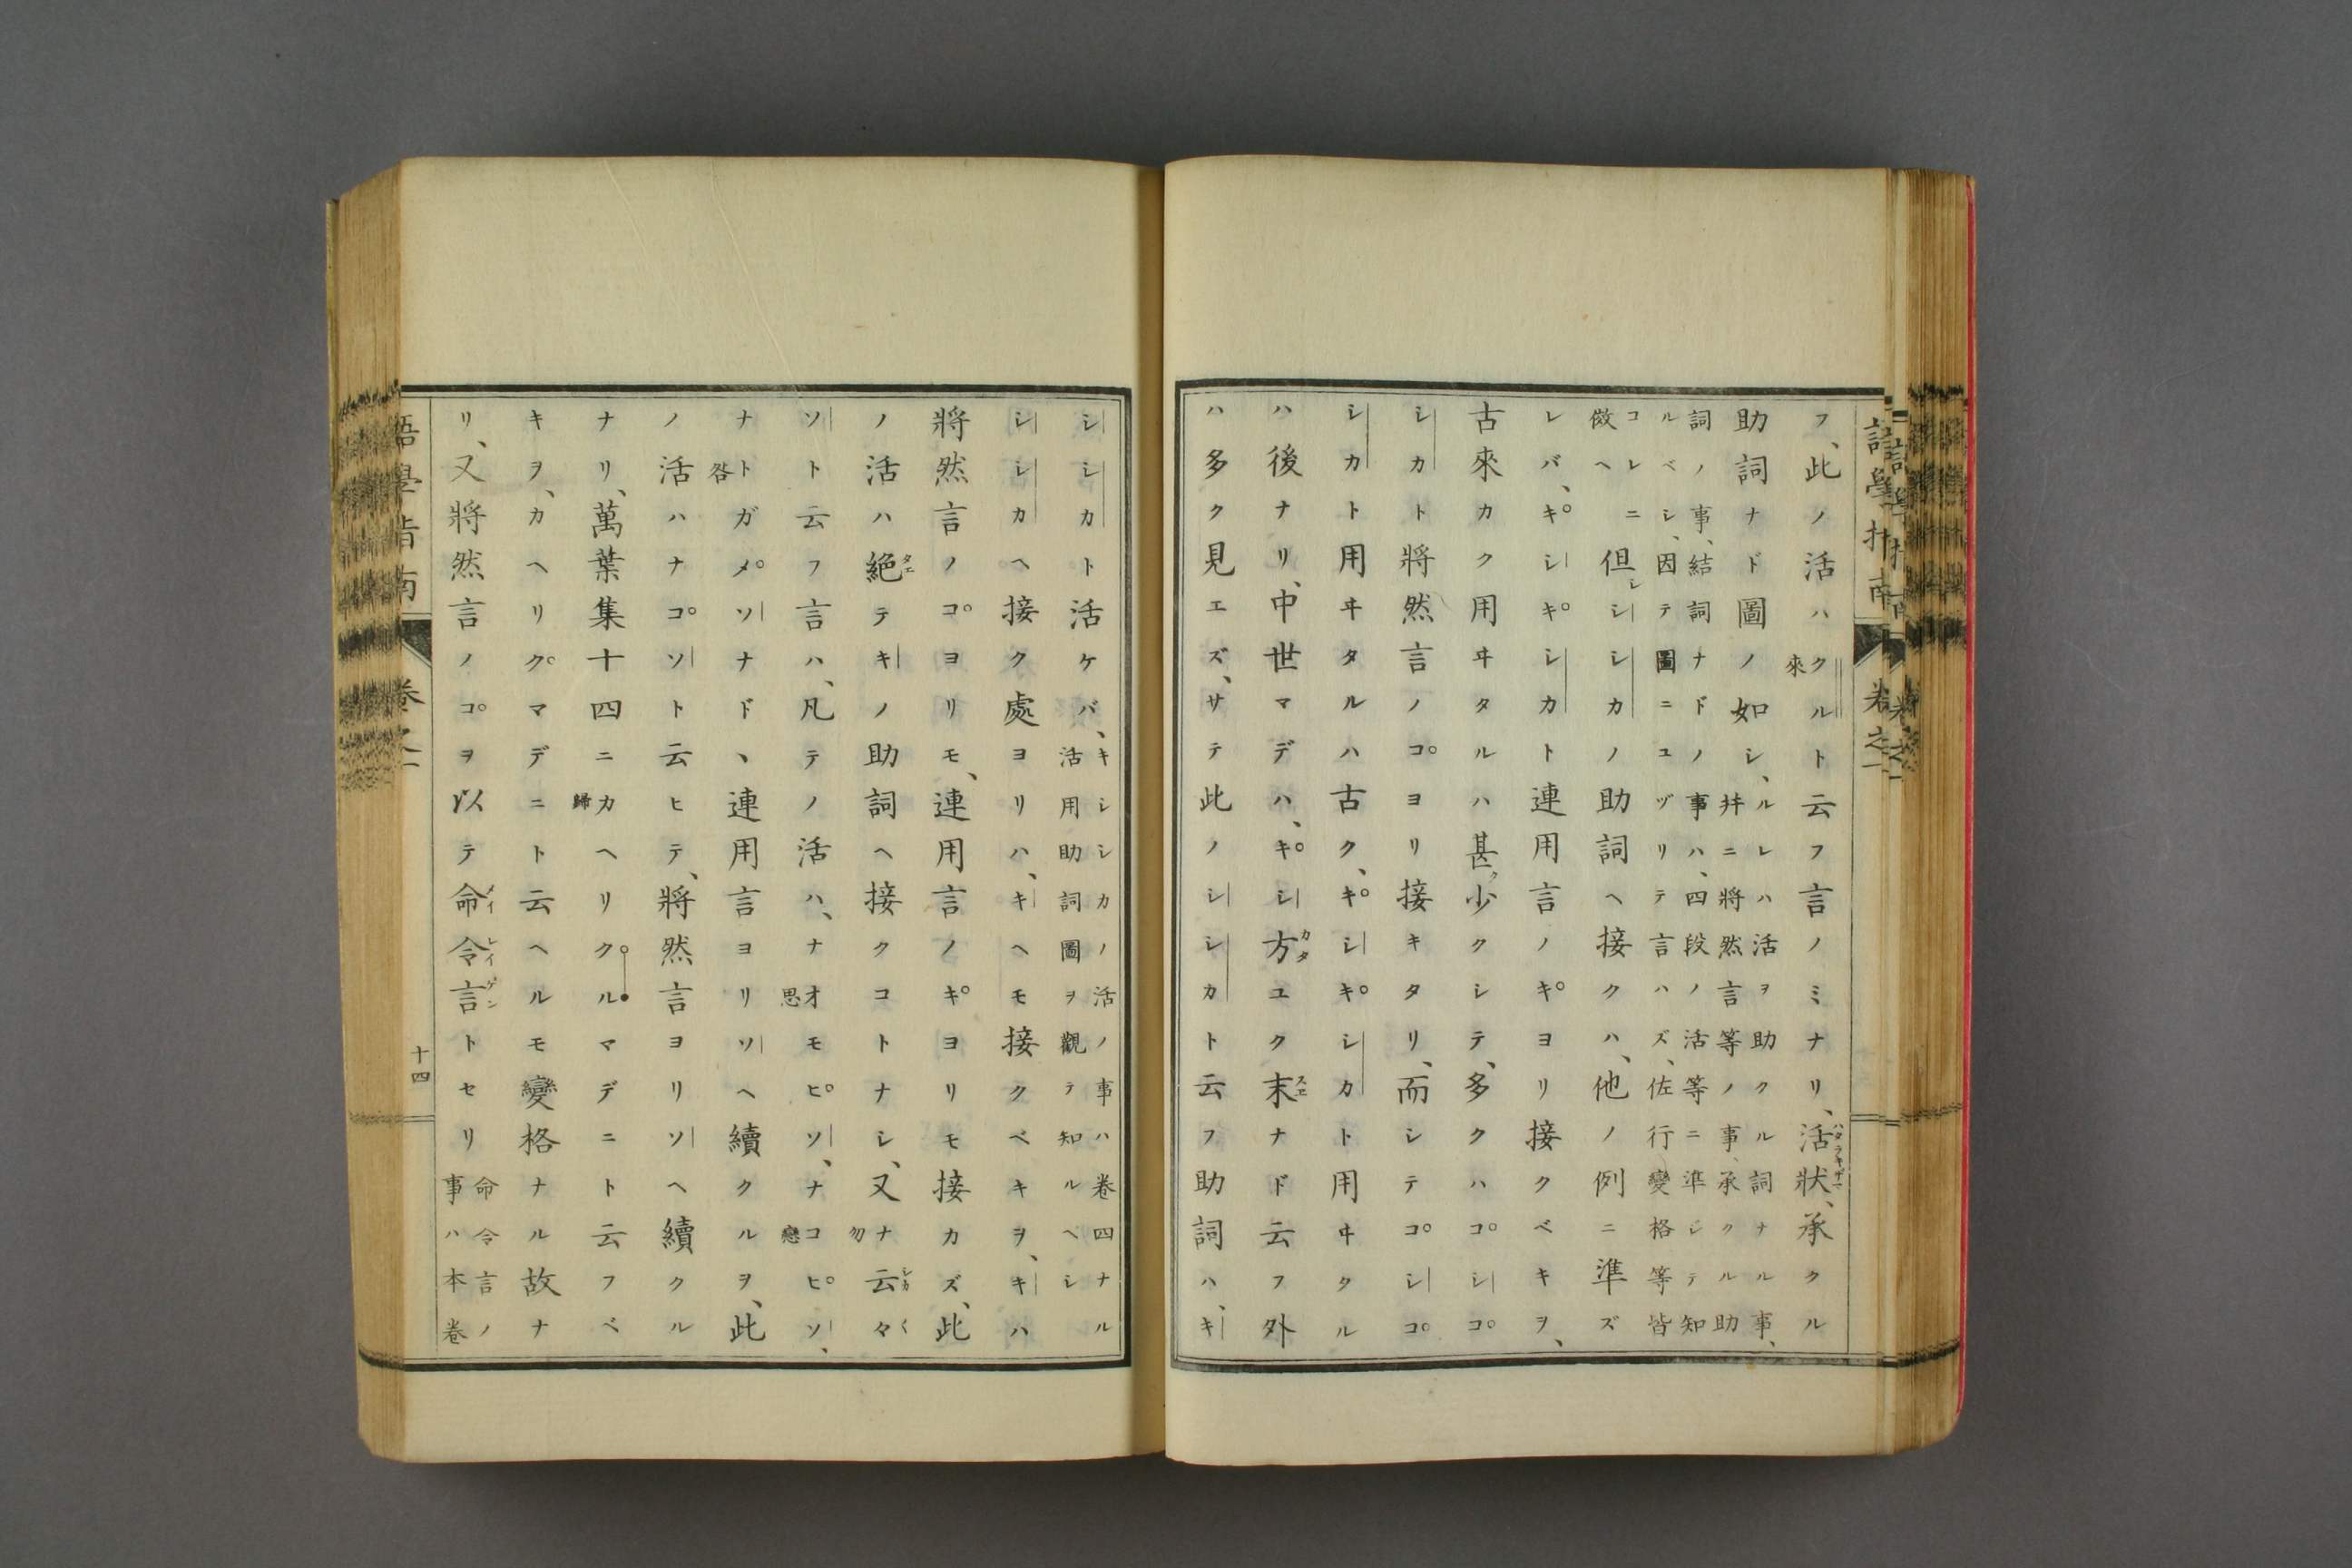 フ、此ノ活ハクル來ト云フ言ノミナリ、活狀、承クル
助詞ナド圖ノ如シ、ルレハ活ヲ助クル詞ナル事、
幷ニ將然言等ノ事、承クル助
詞ノ事、結詞ナドノ事ハ、四段ノ活等ニ準ジテ知
ルベシ、因テ圖ニユヅリテ言ハズ、佐行變格等皆
コレニ
傚ヘ
但シシシカノ助詞ヘ接クハ、他ノ例ニ準ズ
レバ、キシキシカト連用言ノキヨリ接クベキヲ、
古來カク用ヰタルハ甚少クシテ、多クハコシコ
シカト將然言ノコヨリ接キタリ、而シテコシコ
シカト用ヰタルハ古ク、キシキシカト用ヰクル
ハ後ナリ、中世マデハ、キシ方ユク末ナド云フ外
ハ多ク見エズ、サテ此ノシシカト云フ助詞ハ、キ
シシカト活ケバ、キシシカノ活ノ事ハ卷四ナル
活用助詞圖ヲ觀テ知ルベシ
シシカヘ接ク處ヨリハ、キヘモ接クベキヲ、キハ
將然言ノコヨリモ、連用言ノキヨリモ接カズ、此
ノ活ハ絕テキノ助詞ヘ接クコトナシ、又ナ勿云々
ソト云フ言ハ、凡テノ活ハ、ナオモヒソ思、ナコヒソ戀、
ナトガメソ咎ナド、連用言ヨリソヘ續クルヲ、此
ノ活ハナコソト云ヒテ、將然言ヨリソヘ續クル
ナリ、萬葉集十四ニカヘリクルマデニト云フベ
キヲ、カヘリクマデニト云ヘルモ變格ナル故ナ
リ、又將然言ノコヲ以テ命令言トセリ命令言ノ
事ハ本卷
語學指南
卷之一
十四